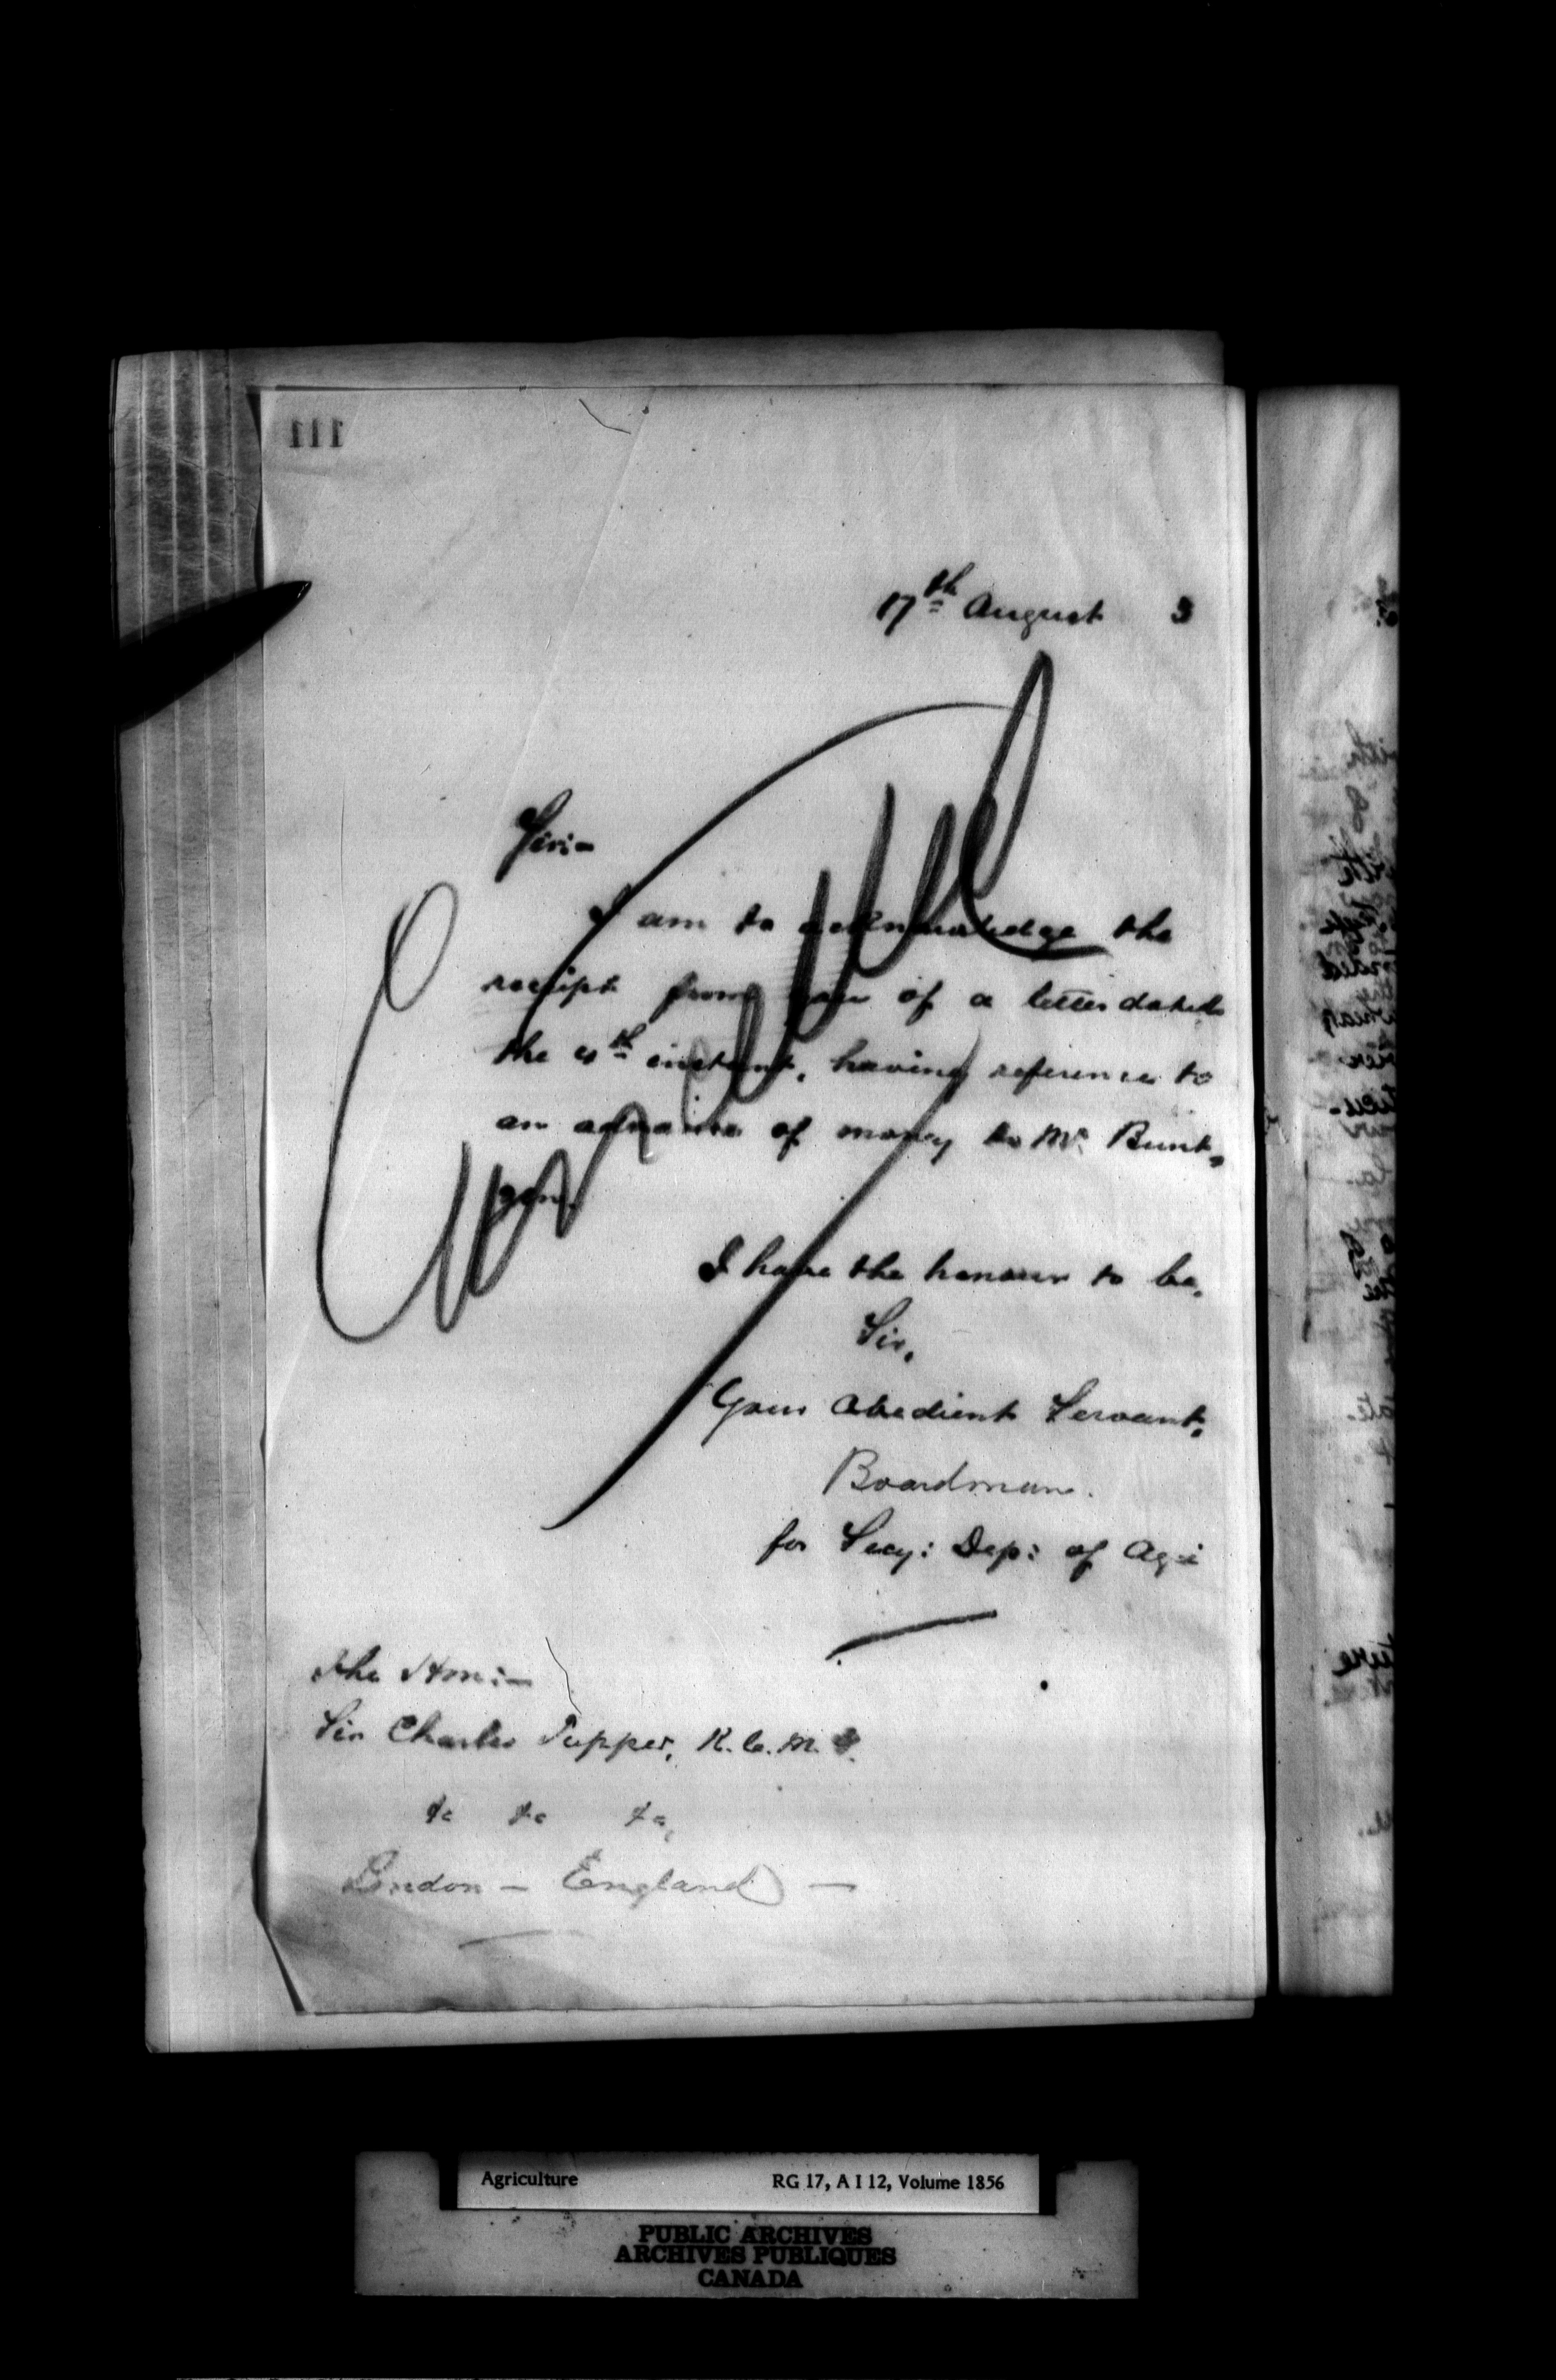 111
17th August 3
Sir:-
I am to acknowledge the
receipt from you of a letter dated
the 4th instant, having reference to
an advance of money to Mr. Bunt,
gen.
I have the honour to be,
Sir,
Your Obedient Servant,
Boardman.
for Secy: Dep: of Agr
The Hon:-
Sir Charles Tupper, K.C.M.G.
&c &c &c,
London - England -
Cancelled
Agriculture RG 17, A I 12, Volume 1856
PUBLIC ARCHIVES
ARCHIVES PUBLIQUES
CANADA